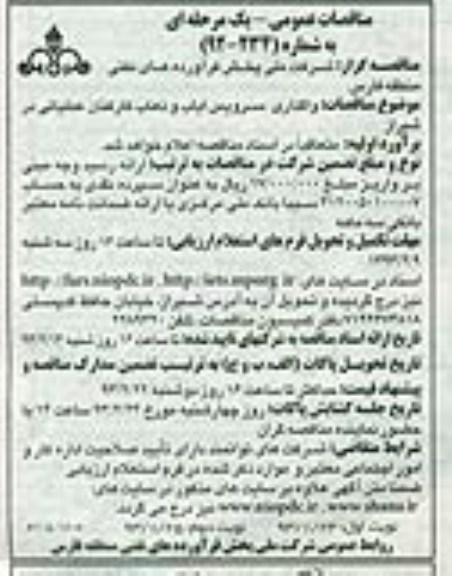 مناقصات عمومی - یک مرحله ای
به شماره (۲۳۴-۹۳)
مناقصه گزار: شرکت ملی پخش فرآورده های نفتی
منطقه فارس
موضوع مناقصات: واگذاری سرویس ایاب و ذهاب کارکنان عملیاتی در
شیراز
برآورد اولیه: متعاقباً در اسناد مناقصه اعلام خواهد شد.
نوع و مبلغ تضمین شرکت در مناقصات به ترتیب: ارائه رسید وجه مبنی
بر واریز مبلغ ریال به عنوان سپرده نقدی به حساب
سیبا بانک ملی مرکزی یا ارائه ضمانت نامه معتبر
بانکی سه ماهه
مهلت تکمیل و تحویل فرم های استعلام ارزیابی: تا ساعت ۱۶ روز سه شنبه
اسناد در سایت های http://iets.mporg.ir , http://fars.niopdc.ir
نیز درج گردیده و تحویل آن به آدرس شیراز، خیابان حافظ کدپستی
دفتر کمیسیون مناقصات تلفن
تاریخ ارائه اسناد مناقصه به شرکتهای تایید شده: تا ساعت ۱۶ روز شنبه
تاریخ تحویل پاکات (الف، ب و ج) به ترتیب تضمین مدارک مناقصه و
پیشنهاد قیمت: حداکثر تا ساعت ۱۶ روز دوشنبه
تاریخ جلسه گشایش پاکات: روز چهارشنبه مورخ ساعت ۱۴ با
حضور نماینده مناقصه گران
شرایط متقاضی: شرکت های توانمند دارای تأیید صلاحیت اداره کار و
امور اجتماعی معتبر و موارد ذکر شده در فرم استعلام ارزیابی
ضمنا متن آگهی علاوه بر سایت های مذکور در سایت های
www.niopdc.ir , www.shana.ir نیز درج می گردد.
نوبت اول: نوبت دوم:
روابط عمومی شرکت ملی پخش فرآورده های نفتی منطقه فارس